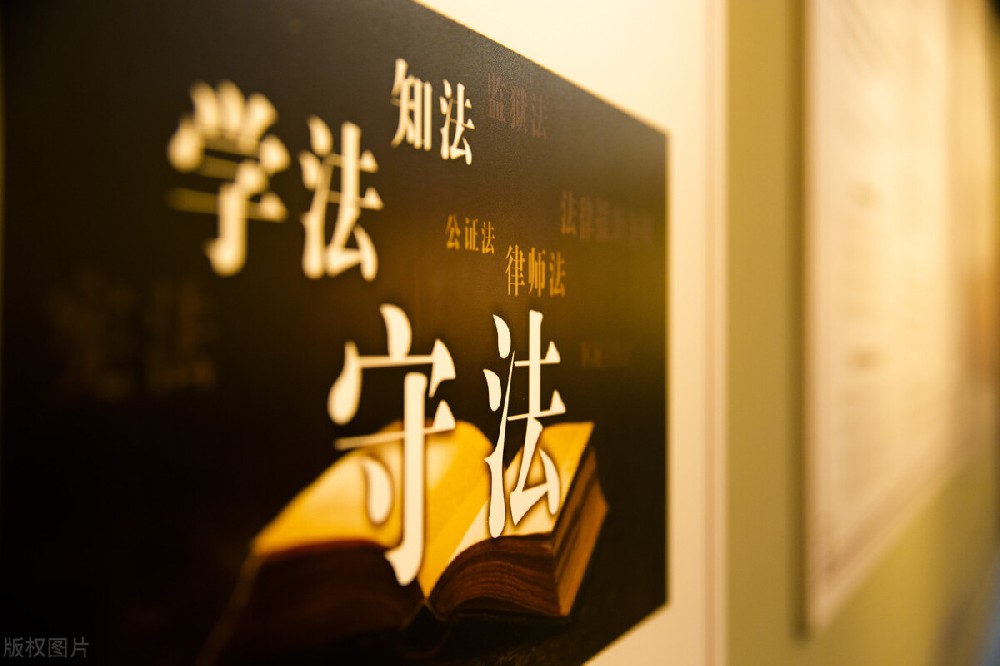 知法
监狱法
学法
公证法
律师法
守法
宪法
版权图片